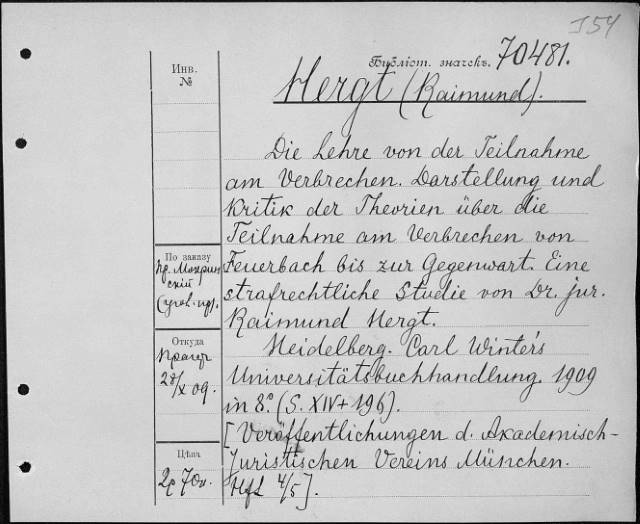 I54
Библіот. значекъ. 70481.
Инв.
№
Hergt (Raimund).
Die Lehre von der Teilnahme
am Verbrechen. Darstellung und
Kritik der Theorien über die
Teilnahme am Verbrechen von
Feuerbach bis zur Gegenwart. Eine
strafrechtliche Studie von Dr. jur.
Raimund Hergt.
Heidelberg. Carl Winter's
Universitätsbuchhandlung. 1909
in 8.° (S. XIV + 196).
[Veröffentlichungen d. Akademisch-
Juristischen Vereins München.
Hft 4/5].
По заказу
пр.
скій
Откуда
28/X 09.
Цѣна
2р 70к.